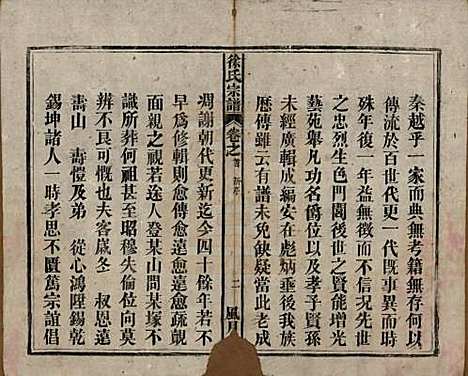 秦越乎一家而典無考籍無存何以
傳流於百世代更一代既事異而時
殊年後一年益無徵而不信况先世
之忠烈生色門閭後世之賢能增光
藝苑舉凡功名爵位以及孝子賢孫
未經廣輯成編安在彪炳垂後我族
歷傳雖云有譜未免缺疑當此老成
徐氏宗譜
卷之首
二
凋謝朝代更新迄今四十餘年若不
早爲修輯則愈傳愈遠愈疏覿
面親之視若途人登某山間某塚不
識所葬何祖甚至昭穆失倫東向莫
辨不良可慨也夫客歲冬 叔恩遠
壽山 壽愷及弟 從心鴻陞錫乾
錫坤諸人一時孝思不匱篤宗誼倡